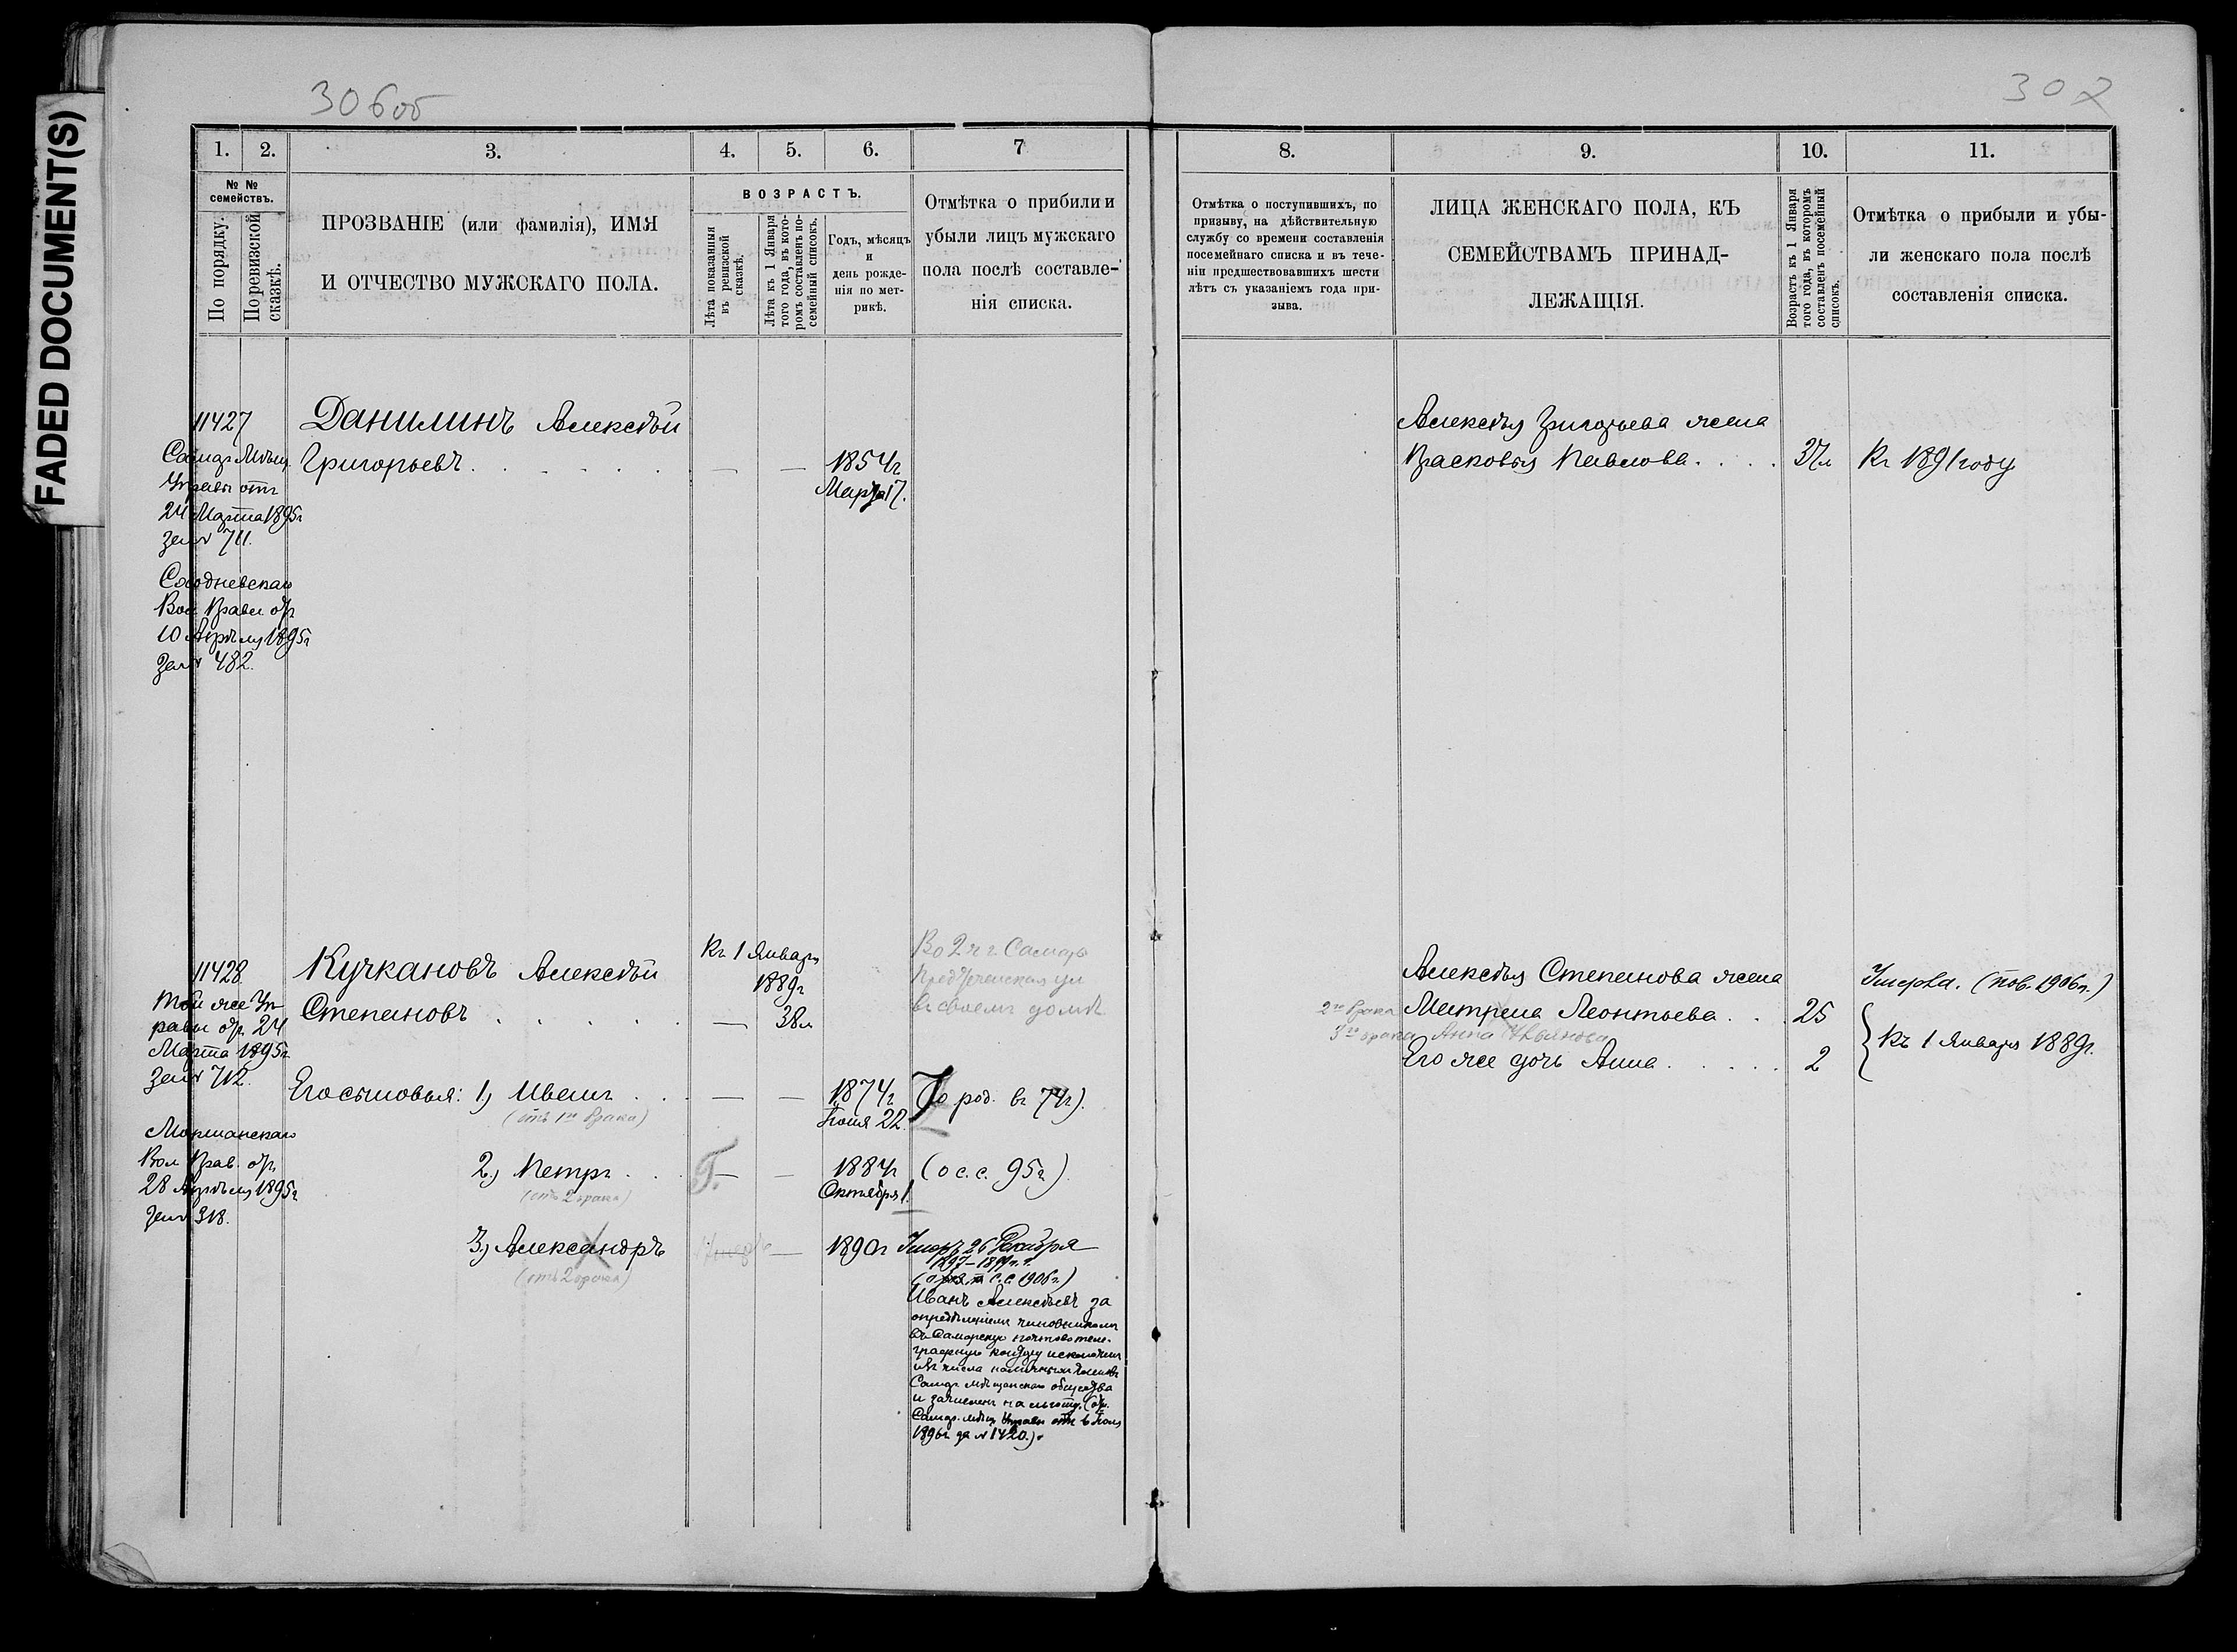 FADED DOCUMENT(S)
306об
307
1.
2.
3.
4.
5.
6.
7
№ №
семействъ.
По порядку.
По ревизской
сказкѣ.
ПРОЗВАНІЕ (или фамилія), ИМЯ
И ОТЧЕСТВО МУЖСКАГО ПОЛА.
ВОЗРАСТЪ.
Лѣта показанныя
въ ревизской
сказкѣ.
Лѣта къ 1 Января
того года, въ кото-
ромъ составленъ по-
семейный списокъ.
Годъ, мѣсяцъ
и
день рожде-
нія по мет-
рикѣ.
Отмѣтка о прибили и
убыли лицъ мужскаго
пола послѣ составле-
нія списка.
8.
9.
10.
11.
Отмѣтка о поступившихъ, по
призыву, на дѣйствительную
службу со времени составленія
посемейнаго списка и въ тече-
ніи предшествовавшихъ шести
лѣтъ съ указаніемъ года при-
зыва.
ЛИЦА ЖЕНСКАГО ПОЛА, КЪ
СЕМЕЙСТВАМЪ ПРИНАД-
ЛЕЖАЩІЯ.
Возрастъ къ 1 Января
того года, въ которомъ
составленъ посемейный
списокъ.
Отмѣтка о прибыли и убы-
ли женскаго пола послѣ
составленія списка.
11427
Самар Мѣщ.
Управы отъ
24 Марта 1895г
за № 711.
Вол Правл от
10 Апрѣля 1895г
за № 482.
Данилинъ Алексѣй
Григорьевъ . . . . . . — —
1854г
Марта 17.
Алексѣя Григорьева жена
Прасковья Павлова . . . . 37л
Къ 1891 году
11428
Той же Уп
равы от. 24
Марта 1895г.
за № 712.
Моршанскаго
Вол Прав. от.
28 Апрѣля 1895г
за № 318.
Кучкановъ Алексѣй
Степановъ . . . . . —
Къ 1 Январь
1889г
38л
Во 2 ч г. Самары
Предтеченская ул
въ своемъ домѣ
Его сыновья: 1) Иванъ . . — —
(отъ 1го брака)
1874г
Іюня 22.
(о род. въ 74г).
2) Петръ . . Г. — —
(отъ 2 брака)
1884г
Октября 1.
(о с.с. 95г).
3) Александръ —
(отъ 2 брака)
1890г
Умеръ 26 Декабря
Иванъ Алексѣевъ за
опредѣленіемъ чиновникомъ
въ Самарскую почтово теле-
графную контору исключенъ
изъ числа
Самар мѣщанскаго общества
и зачисленъ на льготу. (от.
Самар. мѣщ Управы отъ 6 Іюля
1896г за № 1420.).
Алексѣя Степанова жена
2го брака Матрена Леонтьева . . . 25
3го брака Анна
Его же дочь Анна . . . . . 2
Умерла. (пов. 1906г.)
Къ 1 Января 1889г.